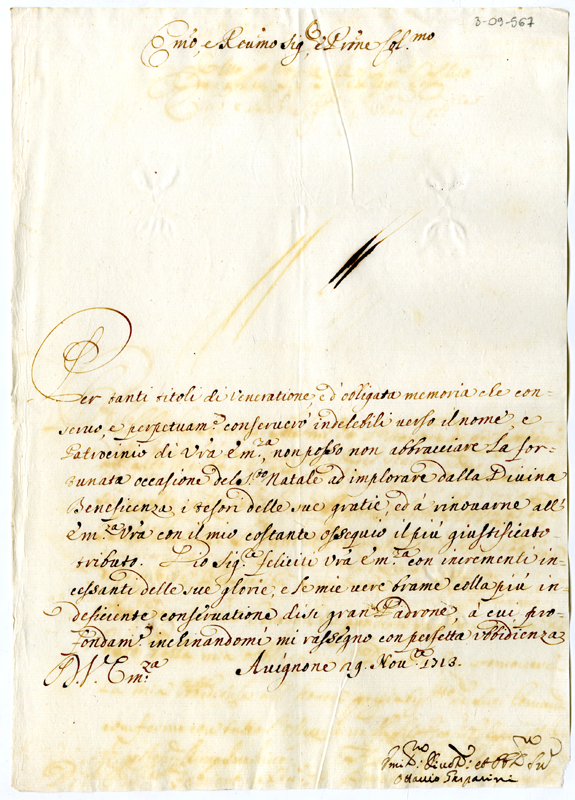 3-09-567
Emo, e Revmo Sig.r, e Prone Col.mo
Per tanti titoli di veneratione, ed obligata memoria che con=
servo, e perpetuam.e conserverò indelebili verso il nome, e
Patrocinio di Vrã Em.za, non posso non abbracciare la for=
tunata occasione del S.to Natale ad implorare dalla Divina
Beneficenza i tesori delle sue gratie, ed à rinovarne all'
Em.za Vrã con il mio costante ossequio il più giustificato
tributo. Dio Sig.e feliciti Vrã Em.za con incrementi in=
cessanti delle sue glorie, e le mie vere brame colla più in=
deficiente conservatione di sì gran Padrone, à cui pro=
fondam.e inclinandomi mi rassegno con perfetta ubbidienza
D. V. Em.za Avignone 29. Nov.re 1713.
Ottavio Gasparini